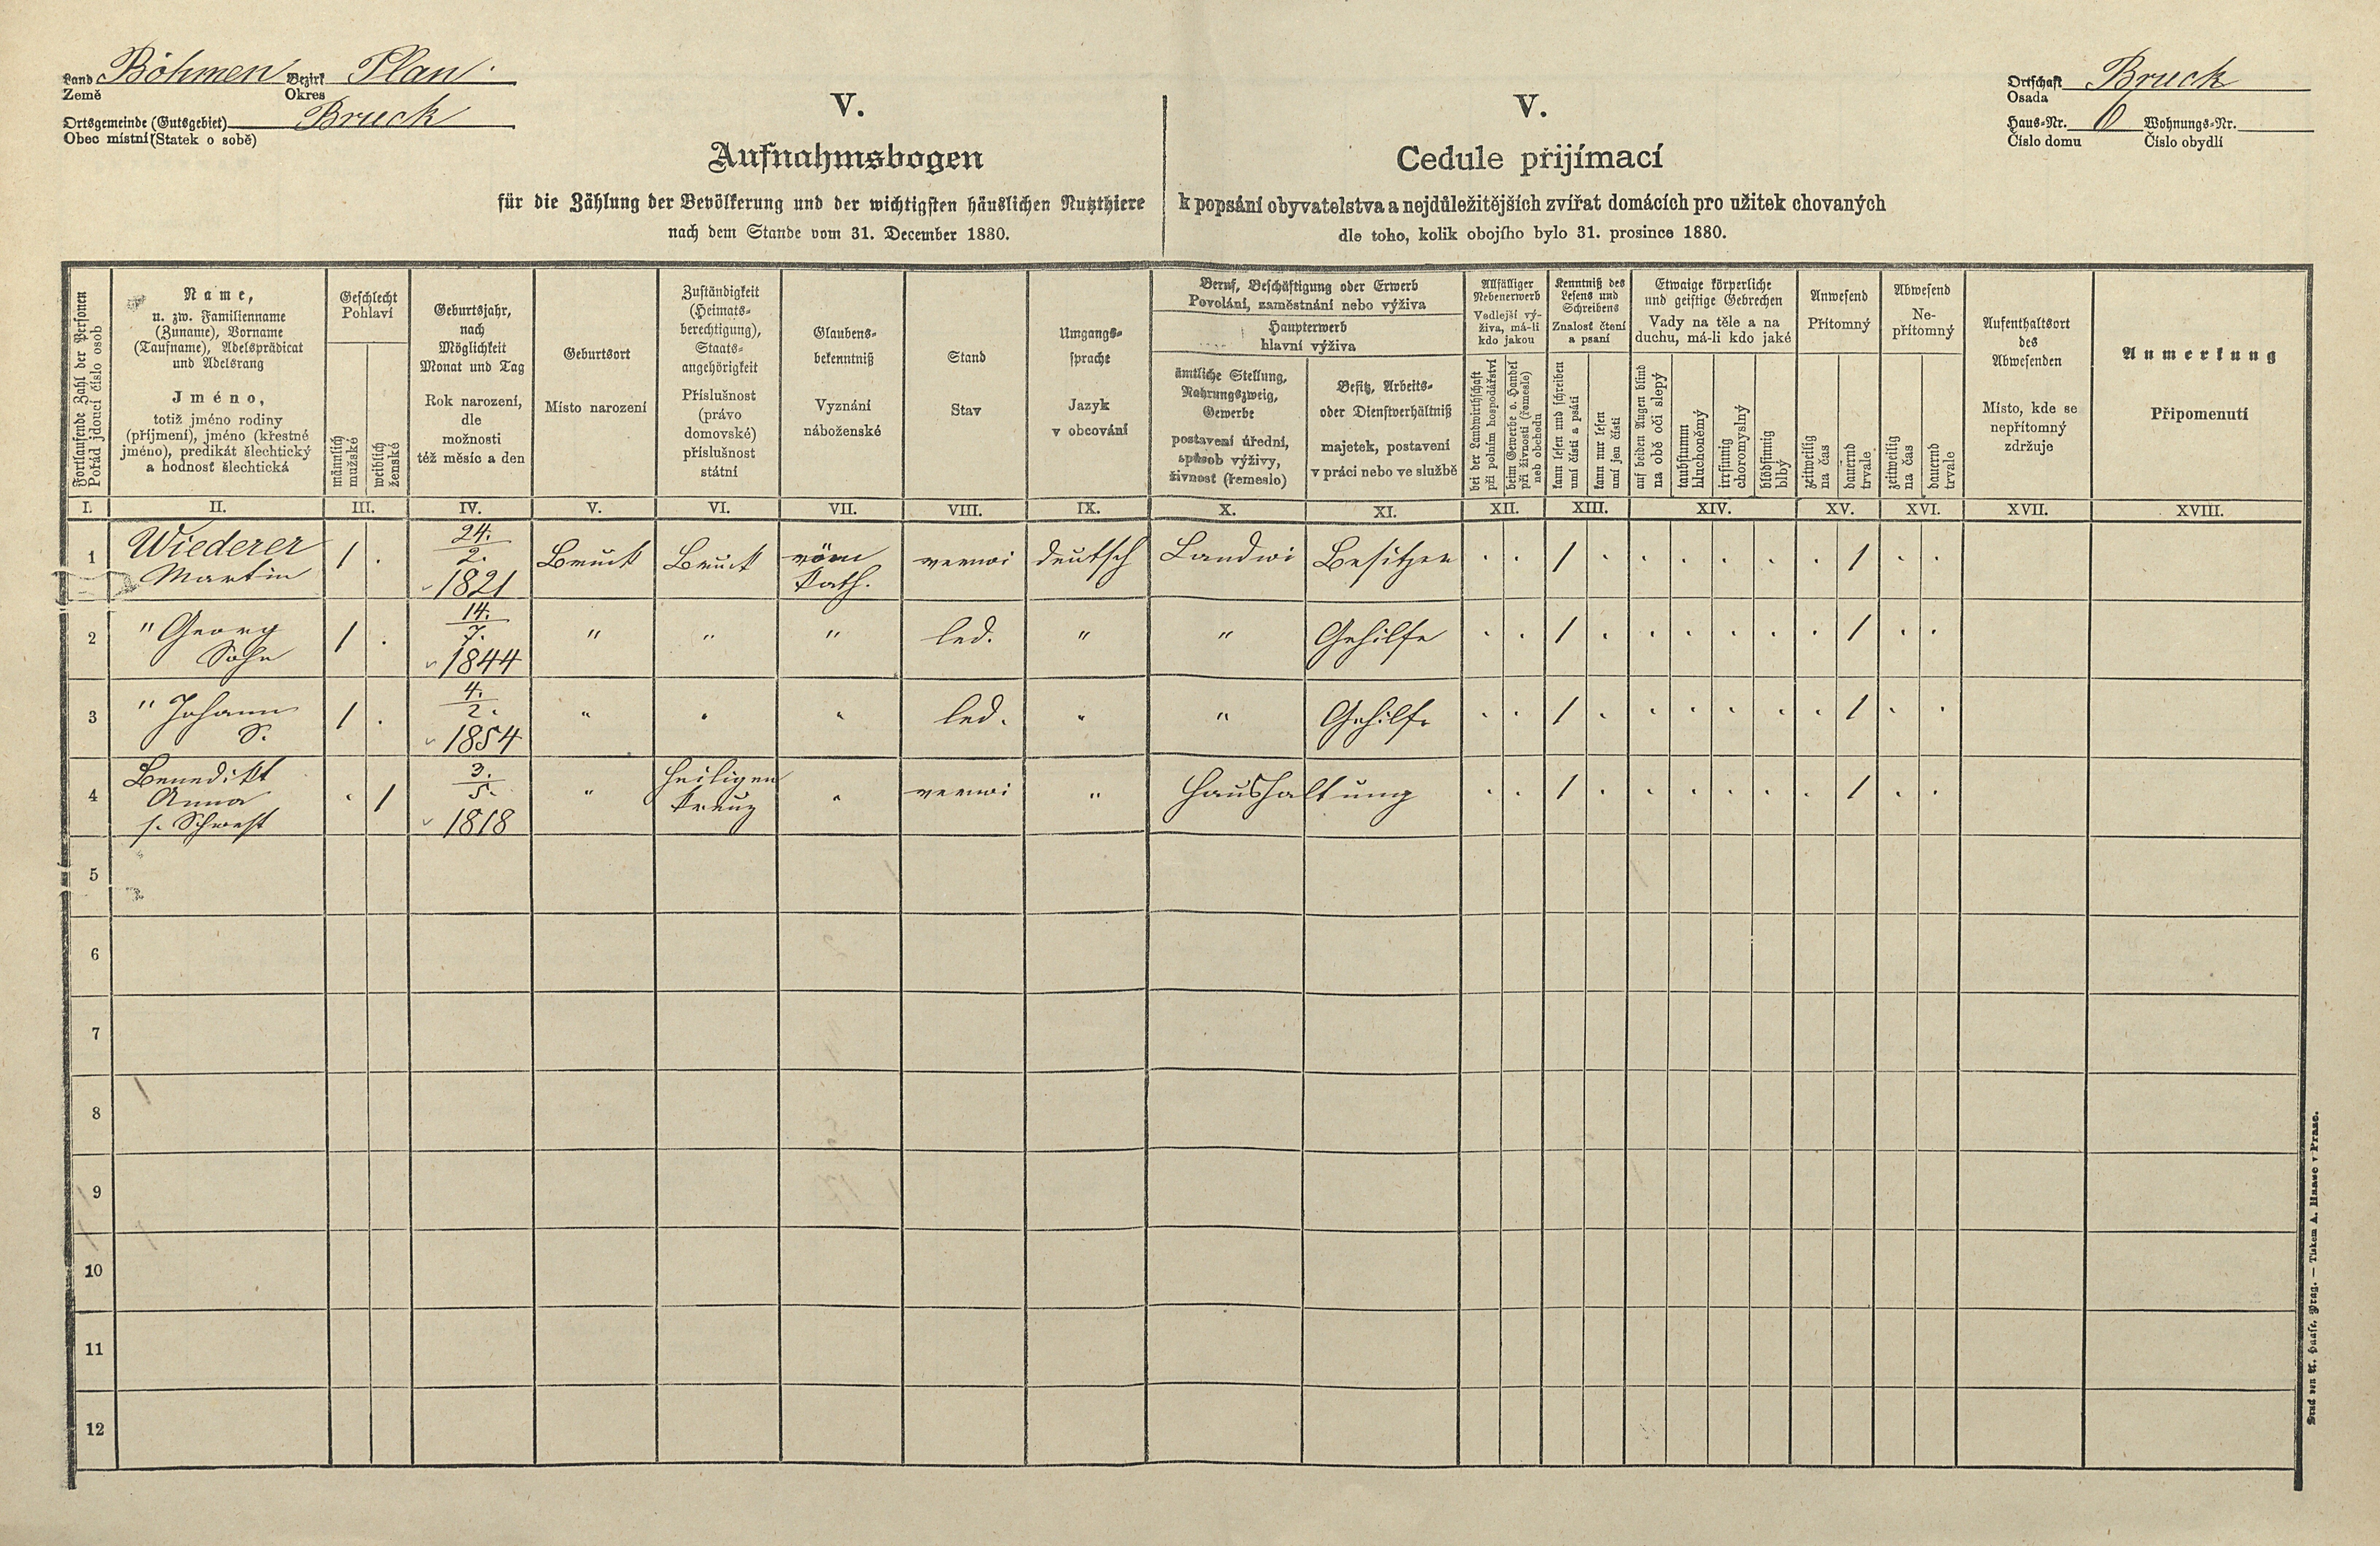 Land Böhmen Bezirk Plan
Země Okres
Ortsgemeinde (Gutsgebiet) Bruck
Obec místní (Statek o sobě)
V.
Aufnahmsbogen
für die Zählung der Bevölkerung und der wichtigsten häuslichen Nutzthiere
nach dem Stande vom 31. December 1880.
V.
Cedule přijímací
k popsání obyvatelstva a nejdůležitějších zvířat domácích pro užitek chovaných
dle toho, kolik obojího bylo 31. prosince 1880.
Ortschaft Bruck
Osada
Haus-Nr. 6 Wohnungs-Nr.
Číslo domu Číslo obydlí
Fortlaufende Zahl der Personen
Pořád jdoucí číslo osob
Name,
u. zw. Familienname
(Zuname), Vorname
(Taufname), Adelsprädicat
und Adelsrang
Jméno,
totiž jméno rodiny
(příjmení), jméno (křestné
jméno), predikát šlechtický
a hodnosť šlechtická
Geschlecht
Pohlaví
männlich
mužské
weiblich
ženské
Geburtsjahr,
nach
Möglichkeit
Monat und Tag
Rok narození,
dle
možnosti
též měsíc a den
Geburtsort
Místo narození
Zuständigkeit
(Heimats-
berechtigung),
Staats-
angehörigkeit
Příslušnost
(právo
domovské)
příslušnost
státní
Glaubens-
bekenntniß
Vyznání
náboženské
Stand
Stav
Umgangs-
sprache
Jazyk
v obcování
Beruf, Beschäftigung oder Erwerb
Povolání, zaměstnání nebo výživa
Haupterwerb
hlavní výživa
ämtliche Stellung,
Nahrungszweig,
Gewerbe
postavení úřední,
způsob výživy,
živnost (řemeslo)
Besitz, Arbeits-
oder Dienstverhältniß
majetek, postavení
v práci nebo ve službě
Allfälliger
Nebenerwerb
Vedlejší vý-
živa, má-li
kdo jakou
bei der Landwirthschaft
při polním hospodářství
beim Gewerbe o. Handel
při živnosti (řemesle)
neb obchodu
Kenntniß des
Lesens und
Schreibens
Znalosť čtení
a psaní
kann lesen und schreiben
umí čísti a psáti
kann nur lesen
umí jen čísti
Etwaige körperliche
und geistige Gebrechen
Vady na těle a na
duchu, má-li kdo jaké
auf beiden Augen blind
na obě oči slepý
taubstumm
hluchoněmý
irrsinnig
choromyslný
blödsinnig
blbý
Anwesend
Přítomný
zeitweilig
na čas
dauernd
trvale
Abwesend
Ne-
přítomný
zeitweilig
na čas
dauernd
trvale
Aufenthaltsort
des
Abwesenden
Místo, kde se
nepřítomný
zdržuje
Anmerkung
Připomenutí
I. II. III. IV. V. VI. VII. VIII. IX. X. XI. XII. XIII. XIV. XV. XVI. XVII. XVIII.
1 Wiederer Martin 1 . 24. 2. 1821 Bruck Bruck röm kath. verwi deutsch Landwi Besitzer . . 1 . . . . . . 1 . .
2 " Georg Sohn 1 . 14. 7. 1844 " " " led. " " Gehilfe . . 1 . . . . . . 1 . .
3 " Johann S. 1 . 4. 2. 1854 " " " led. " " Gehilfe . . 1 . . . . . . 1 . .
4 Benedikt Anna s. Schwest . 1 3. 5. 1818 " Heiligen kreuz " verwi " Haushaltung . . 1 . . . . . . 1 . .
5
6
7
8
9
10
11
12
Druck von A. Haase, Prag. — Tiskem A. Haase v Praze.